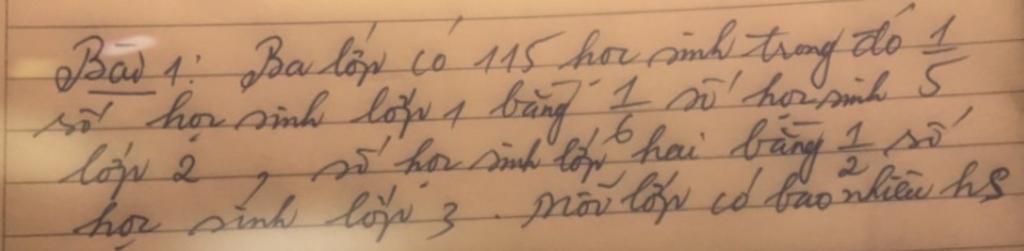 Bài 1: Ba lớp có 115 học sinh trong đó 1/5
số học sinh lớp 1 bằng 1/6 số học sinh
lớp 2, số học sinh lớp hai bằng 1/2 số
học sinh lớp 3. Mỗi lớp có bao nhiêu hs